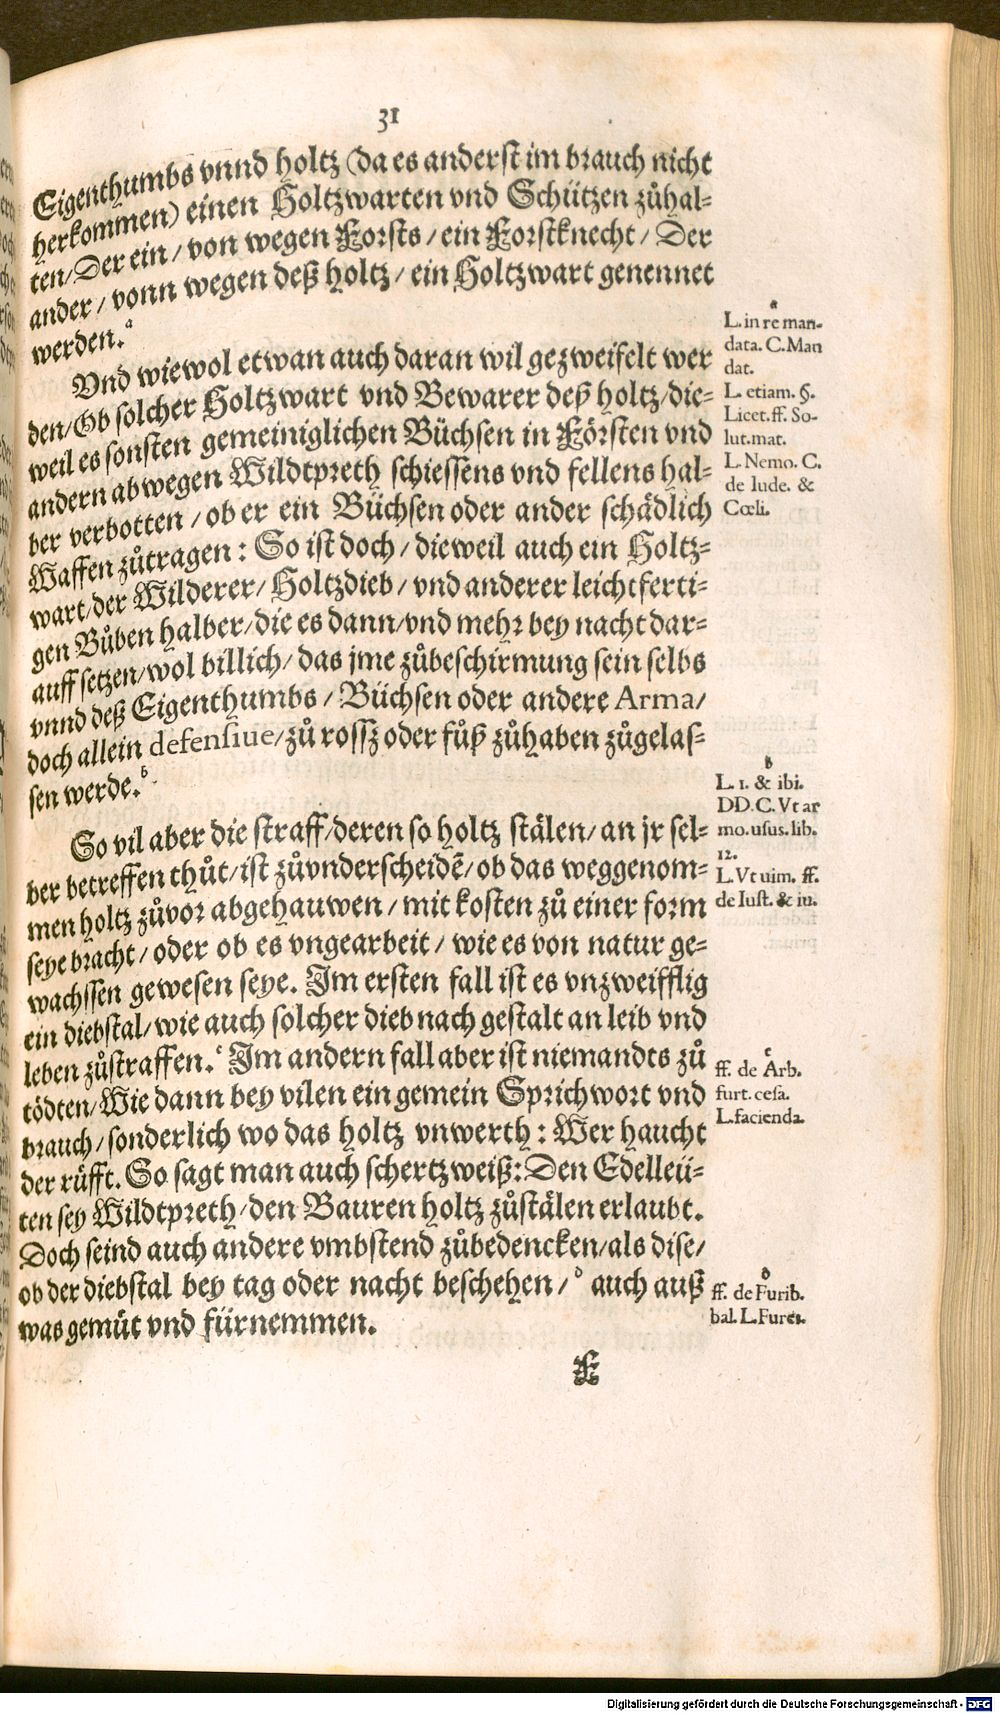 31
Eigenthumbs vnnd holtz (da es anderst im brauch nicht
herkommen) einen Holtzwarten vnd Schützen zůhal-
ten/ Der ein/ von wegen Forsts/ ein Forstknecht/ Der
ander/ vonn wegen deß holtz/ ein Holtzwart genennet
werden.ᵃ
Vnd wiewol etwan auch daran wil gezweifelt wer
den/ Ob solcher Holtzwart vnd Bewarer deß holtz/ die-
weil es sonsten gemeiniglichen Büchsen in Försten vnd
andern abwegen Wildtpreth schiessens vnd fellens hal-
ber verbotten/ ob er ein Büchsen oder ander schädlich
Waffen zůtragen: So ist doch/ dieweil auch ein Holtz-
wart/ der Wilderer/ Holtzdieb/ vnd anderer leichtferti-
gen Bůben halber/ die es dann/ vnd mehr bey nacht dar-
auff setzen/ wol billich/ das jme zůbeschirmung sein selbs
vnnd deß Eigenthumbs/ Büchsen oder andere Arma/
doch allein defensiue/ zů rossz oder fůß zůhaben zůgelas-
sen werde.ᵇ
So vil aber die straff/ deren so holtz stälen/ an jr sel-
ber betreffen thůt/ ist zůvnderscheidē/ ob das weggenom-
men holtz zůvor abgehauwen/ mit kosten zů einer form
seye bracht/ oder ob es vngearbeit/ wie es von natur ge-
wachssen gewesen seye. Im ersten fall ist es vnzweifflig
ein diebstal/ wie auch solcher dieb nach gestalt an leib vnd
leben zůstraffen.ᶜ Im andern fall aber ist niemandts zů
tödten/ Wie dann bey vilen ein gemein Sprichwort vnd
brauch/ sonderlich wo das holtz vnwerth: Wer haucht
der rüfft. So sagt man auch schertzweiß: Den Edelleü-
ten sey Wildtpreth/ den Bauren holtz zůstälen erlaubt.
Doch seind auch andere vmbstend zůbedencken/ als dise/
ob der diebstal bey tag oder nacht beschehen/ᵈ auch auß
was gemüt vnd fürnemmen.
F
a
L. in re man-
data. C. Man
dat.
L. etiam. §.
Licet. ff. So-
lut. mat.
L. Nemo. C.
de Iude. &
Cœli.
b
L. 1. & ibi.
DD. C. Vt ar
mo. usus. lib.
12.
L. Vt uim. ff.
de Iust. & iu.
c
ff. de Arb.
furt. cesa.
L. facienda.
d
ff. de Furib.
bal. L. Fures.
Digitalisierung gefördert durch die Deutsche Forschungsgemeinschaft - DFG